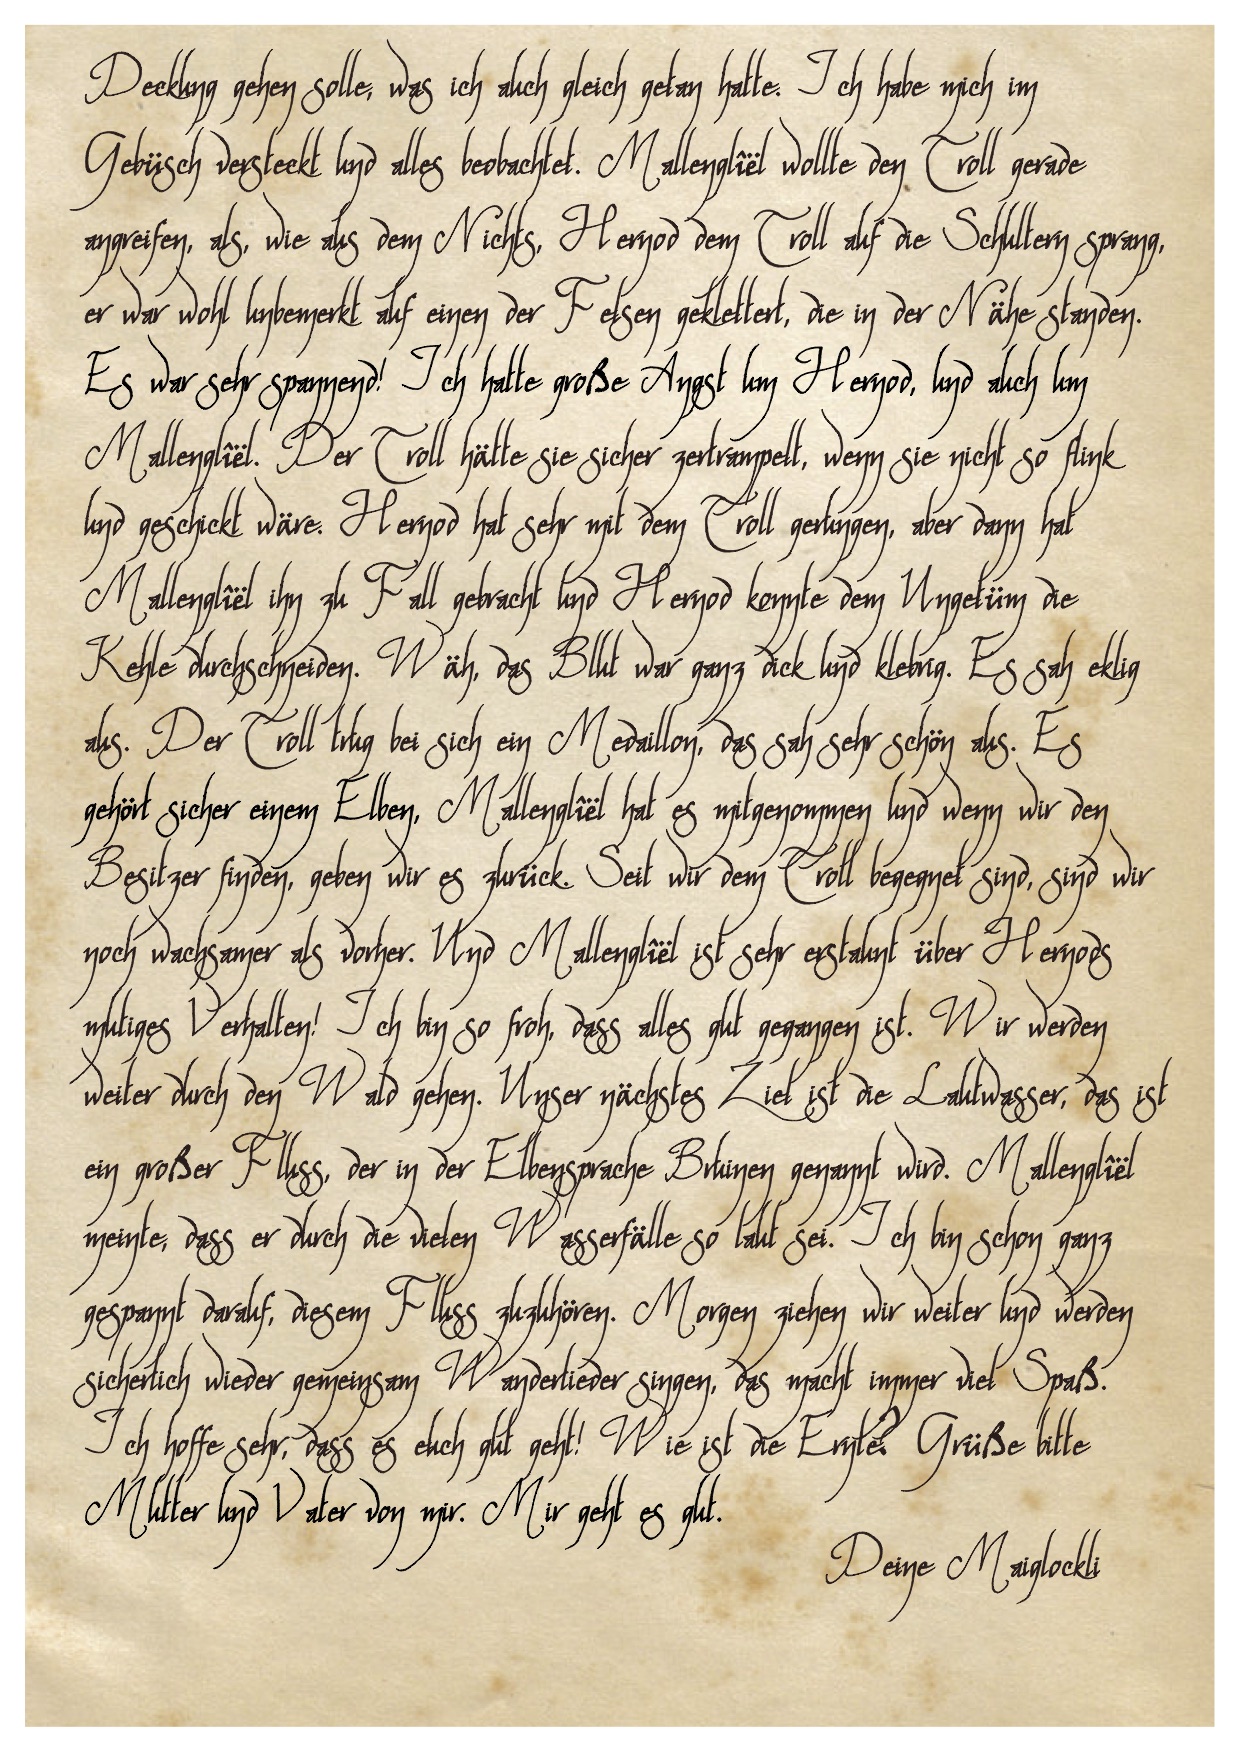 Deckung gehen solle, was ich auch gleich getan hatte. Ich habe mich im
Gebüsch versteckt und alles beobachtet. Mallenglîël wollte den Troll gerade
angreifen, als, wie aus dem Nichts, Hernod dem Troll auf die Schultern sprang,
er war wohl unbemerkt auf einen der Felsen geklettert, die in der Nähe standen.
Es war sehr spannend! Ich hatte große Angst um Hernod, und auch um
Mallenglîël. Der Troll hätte sie sicher zertrampelt, wenn sie nicht so flink
und geschickt wäre. Hernod hat sehr mit dem Troll gerungen, aber dann hat
Mallenglîël ihn zu Fall gebracht und Hernod konnte dem Ungetüm die
Kehle durchschneiden. Wäh, das Blut war ganz dick und klebrig. Es sah eklig
aus. Der Troll trug bei sich ein Medaillon, das sah sehr schön aus. Es
gehört sicher einem Elben, Mallenglîël hat es mitgenommen und wenn wir den
Besitzer finden, geben wir es zurück. Seit wir dem Troll begegnet sind, sind wir
noch wachsamer als vorher. Und Mallenglîël ist sehr erstaunt über Hernods
mutiges Verhalten! Ich bin so froh, dass alles gut gegangen ist. Wir werden
weiter durch den Wald gehen. Unser nächstes Ziel ist die Lautwasser, das ist
ein großer Fluss, der in der Elbensprache Bruinen genannt wird. Mallenglîël
meinte, dass er durch die vielen Wasserfälle so laut sei. Ich bin schon ganz
gespannt darauf, diesem Fluss zuzuhören. Morgen ziehen wir weiter und werden
sicherlich wieder gemeinsam Wanderlieder singen, das macht immer viel Spaß.
Ich hoffe sehr, dass es euch gut geht! Wie ist die Ernte? Grüße bitte
Mutter und Vater von mir. Mir geht es gut.
Deine Maiglockli